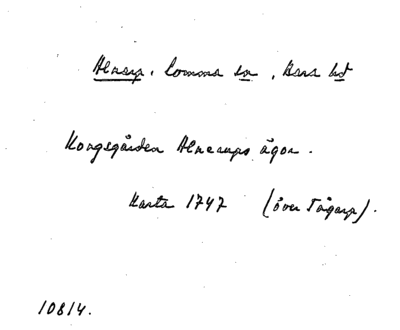 Alnarp, Lomma sn, Bara hd
Kungsgården Alnarps ägor.
Karta 1747 (över Tågarp).
10814.